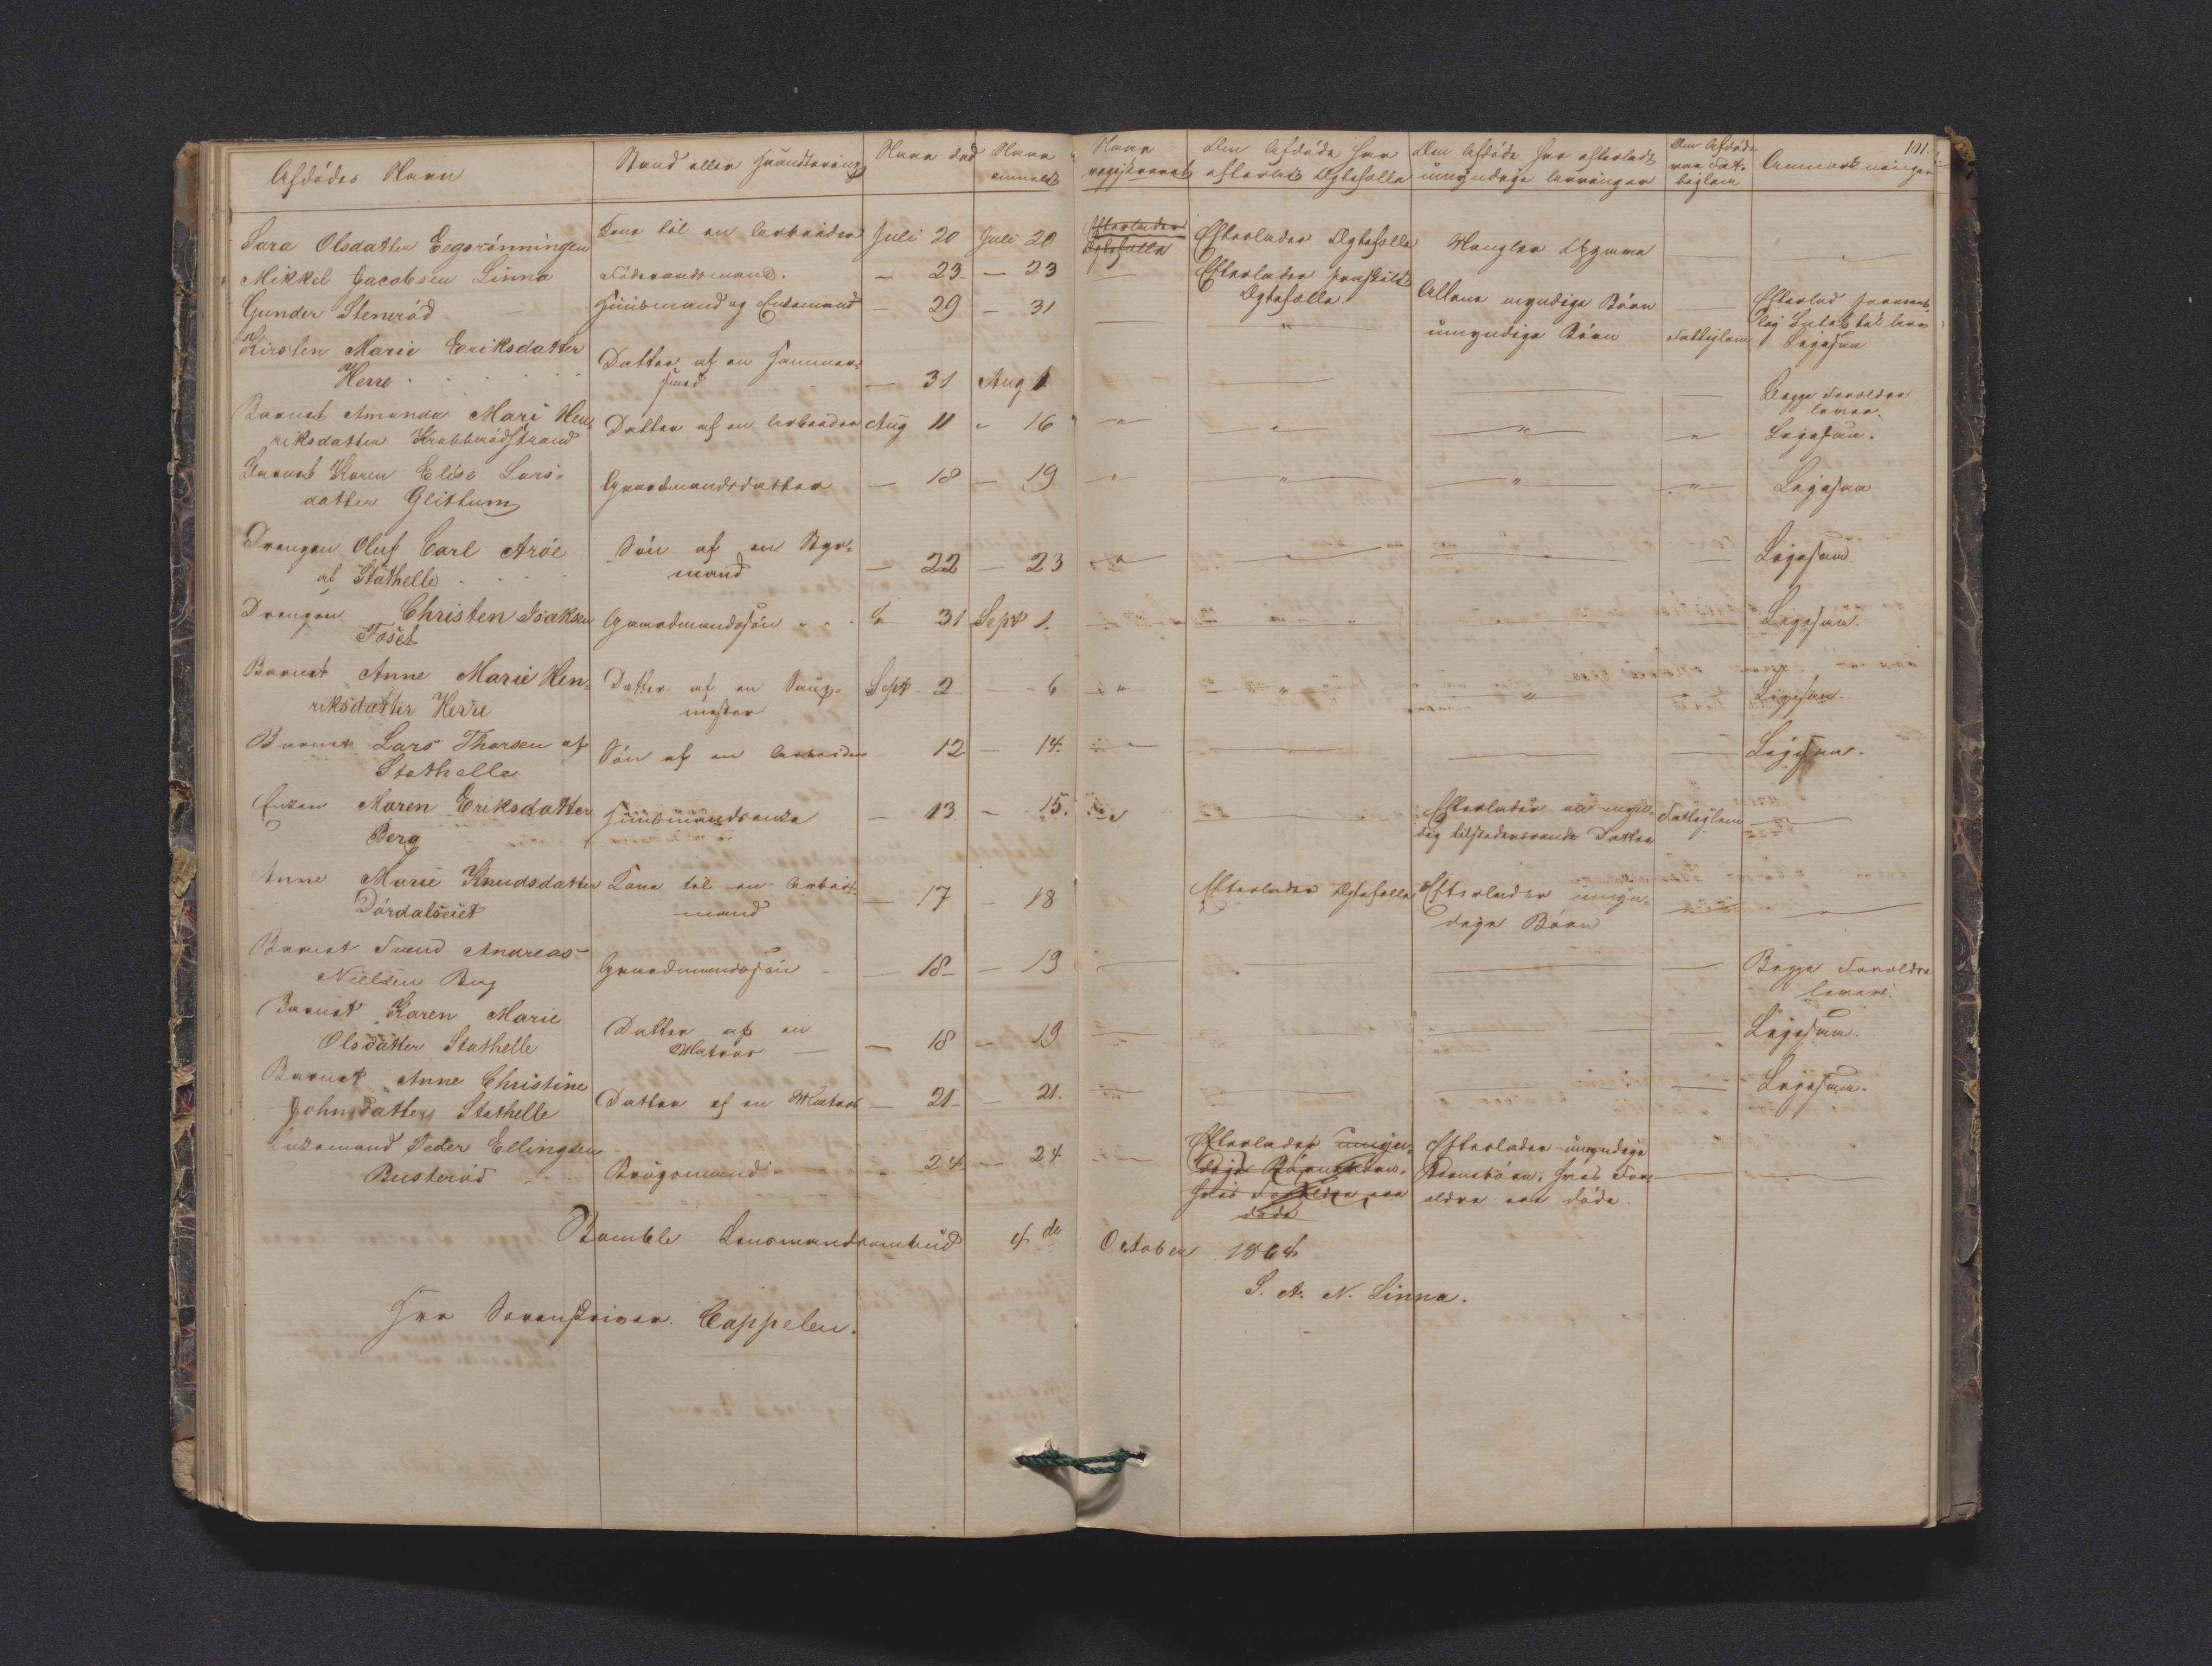 101.
Afdødes Navn | Stand eller Haandtering | Naar død | Naar anmeldt | Naar registreret | Den Afdøde har efterladt Ægtefælle | Den Afdøde har efterladt umyndige Arvinger | Den Afdøde var Fattiglem | Anmærkninger
Sara Olsdatter Eegerönningen | Kone til en Arbeider | Juli 20 | Juli 20 | Efterlader Ægtefælle | Efterlader Ægtefælle
Mikkel Jacobsen Linna | Föderaadsmand. | — 23 | — 23 | — | Efterlader fraskilt Ægtefælle | Allene myndige Börn
Gunder Stenröd | Huusmand og Enkemand | — 29 | — 31 | — | " | umyndige Börn | Fattiglem | Efterlod
Kirsten Marie Eriksdatter
Herre | Datter af en Hammersmed | — 31 | Aug 1 | Begge Forældre lever.
Barnet Amanda Mari Hen
riksdatter Krabberödstrand | Datter af en Arbeider | Aug 11 | " 16 | Ligesaa.
Barnet Karen Elise Lars-
datter Glittum | Gaardmandsdatter | — 18 | — 19 | Ligesaa
Drengen Oluf Carl Aröe
af Stathelle | Sön af en Styrmand | — 22 | — 23 | Ligesaa.
Drengen Christen Isaksen
Foset | Gaardmandssön | 31 | Sept 1. | Ligesaa.
Barnet Anne Marie Hen-
riksdatter Herre | Datter af en Saugmester | Sept 2 | — 6 | Ligesaa.
Barnet Lars Thorsen af
Stathelle | Sön af en Arbeider | 12 | — 14. | Ligesaa.
Enken Maren Eriksdatter
Berg | Huusmandsenke | — 13 | — 15. | Efterlader en myndig tilstedeværende Datter | Fattiglem
Anne Marie Knudsdatter
Dördalseiet | Kone til en Arbeidsmand | — 17 | — 18 | Efterlader Ægtefælle | Efterlader umyndige Börn
Barnet Andreas
Nielsen Berg | Gaardmandssön | — 18 | — 19 | Begge Forældre lever.
Barnet Karen Marie
Olsdatter Stathelle | Datter af en Matros | — 18 | — 19 | Ligesaa.
Barnet Anne Christine
Johnsdatter Stathelle | Datter af en Matros | — 21 | — 21. | Ligesaa.
Enkemand Peder Ellingsen
Rusteröd | Brugsmand | 24 | — 24 | Efterlader umyndige Börnebörn, hvis Forældre ere döde | Efterlader umyndige Börnebörn, hvis Forældre ere döde.
Bamble Lensmandsombud 4de October 1864
S. A. N. Linna.
Hr Sorenskriver Cappelen.